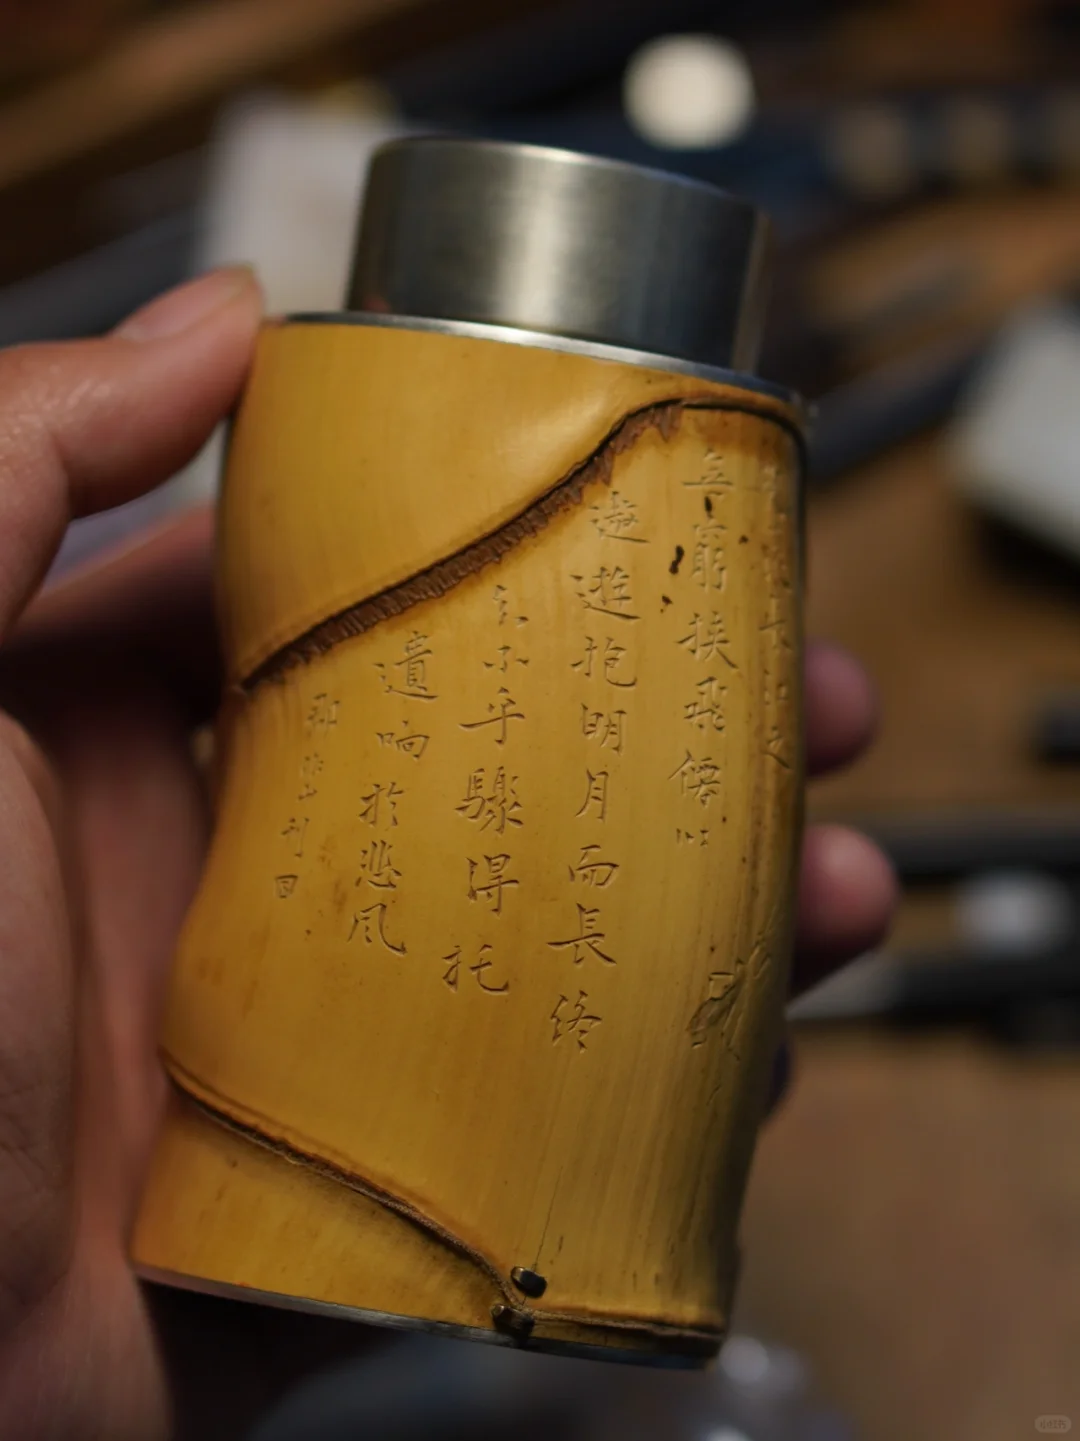 長江之
無窮挟飛僊以
遨遊抱明月而長終
不乎驟得托
遺响於悲风
刊
小红书